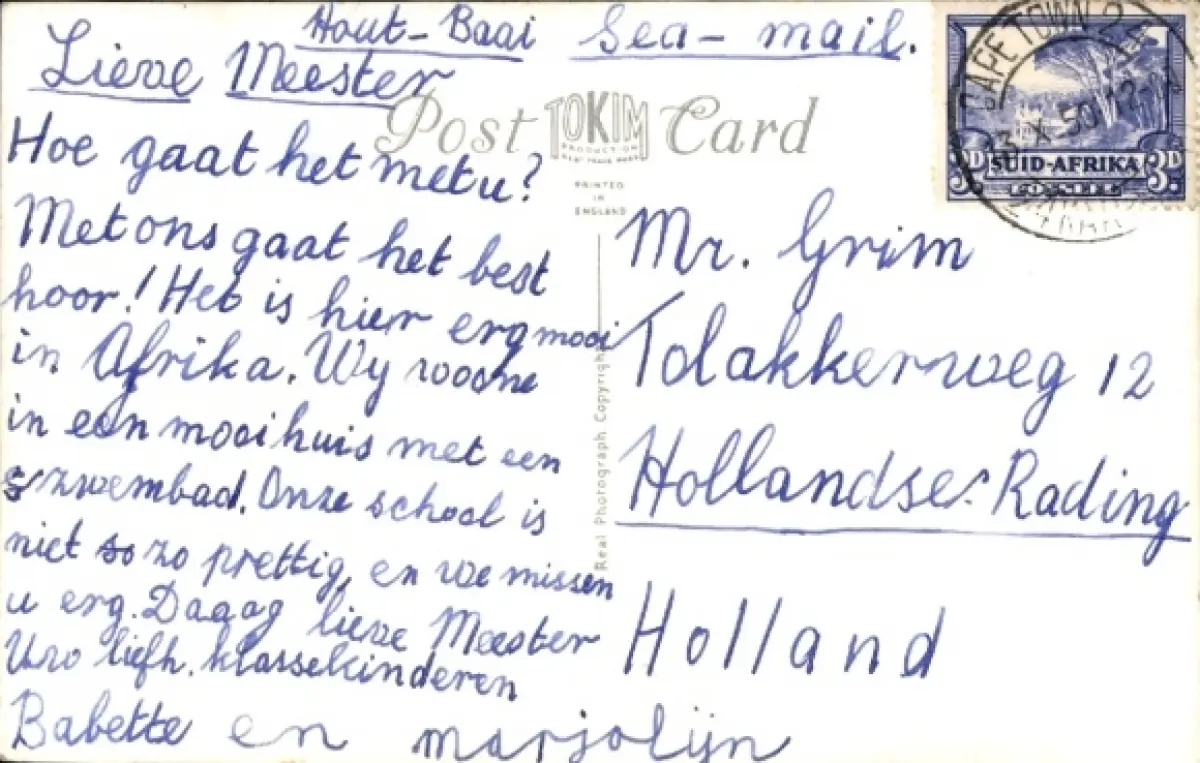 Hout-Baai Sea-mail.
Lieve Meester
Post TOKIM Card
PRODUCTION
PRINTED
IN
ENGLAND
Hoe gaat het met u?
Met ons gaat het best
hoor! Het is hier erg mooi
in Afrika. Wy woone
in een mooi huis met een
zwembad. Onze school is
niet so zo prettig, en we missen
u erg. Daaag lieve Meester
Uw liefh. klassekinderen
Babette en marjolijn
Real Photograph Copyright
CAPE TOWN
X 50
SUID-AFRIKA
3D 3D
POSSEEL
Mr. Grim
Tolakkerweg 12
Hollandse Rading
Holland